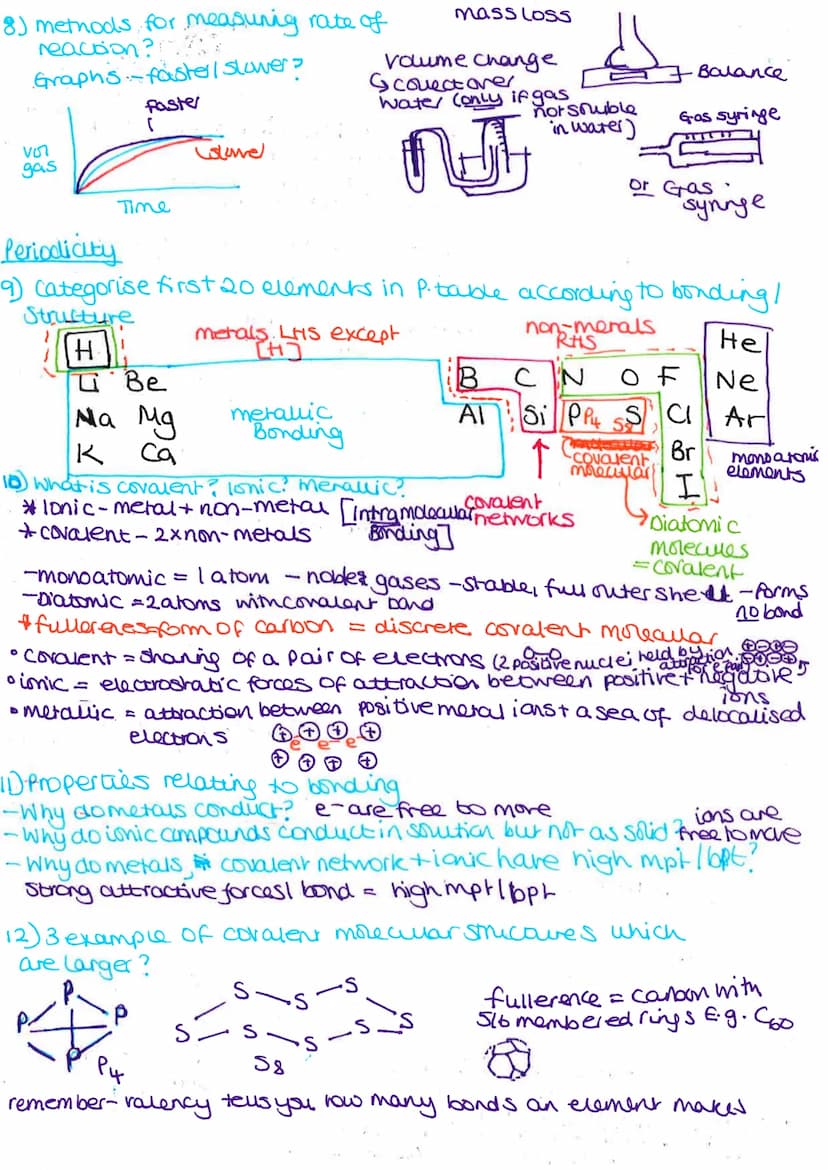 8) methods for measuring rate of
reaction?
Graphs - faster/slower?
faster
slower
vol
gas
Time
mass loss
Balance
volume change
↳ collect over
water (only if gas
not soluble
in water)
Gas syringe
or Gas
syringe
Periodicity
9) Categorise first 20 elements in P.table according to bonding/
Structure
metals LHS except
[H]
non-metals
RHS
H
He
Li Be
B C N O F Ne
Na Mg
Al Si P P4 S S8 Cl Ar
metallic
Bonding
K Ca
Br
I
covalent
molecular
monoatomic
elements
covalent
networks
Diatomic
molecules
= covalent
10) What is covalent? Ionic? Metallic?
* Ionic - metal + non-metal [Intramolecular
Bonding]
* covalent - 2 x non-metals
- monoatomic = 1 atom - noble gases - stable, full outer shell - forms
no bond
- Diatomic = 2 atoms with covalent bond
* fullerenes = form of carbon = discrete covalent molecular
• covalent = sharing of a pair of electrons (2 positive nuclei held by attraction for e pair)
• ionic = electrostatic forces of attraction between positive + negative
ions
• metallic = attraction between positive metal ions + a sea of delocalised
electrons
+ + + +
e- e- e-
+ + + +
11) Properties relating to bonding
- Why do metals conduct? e- are free to more
- Why do ionic compounds conduct in solution but not as solid? ions are
free to move
- Why do metals, covalent network + ionic have high mpt/bpt?
Strong attractive forces/bond = high mpt/bpt
12) 3 example of covalent molecular structures which
are larger?
P
P P
P
P4
S S S
S S S S S
S8
fullerence = carbon with
5/6 membered rings E.g. C60
remember - valency tells you how many bonds an element makes